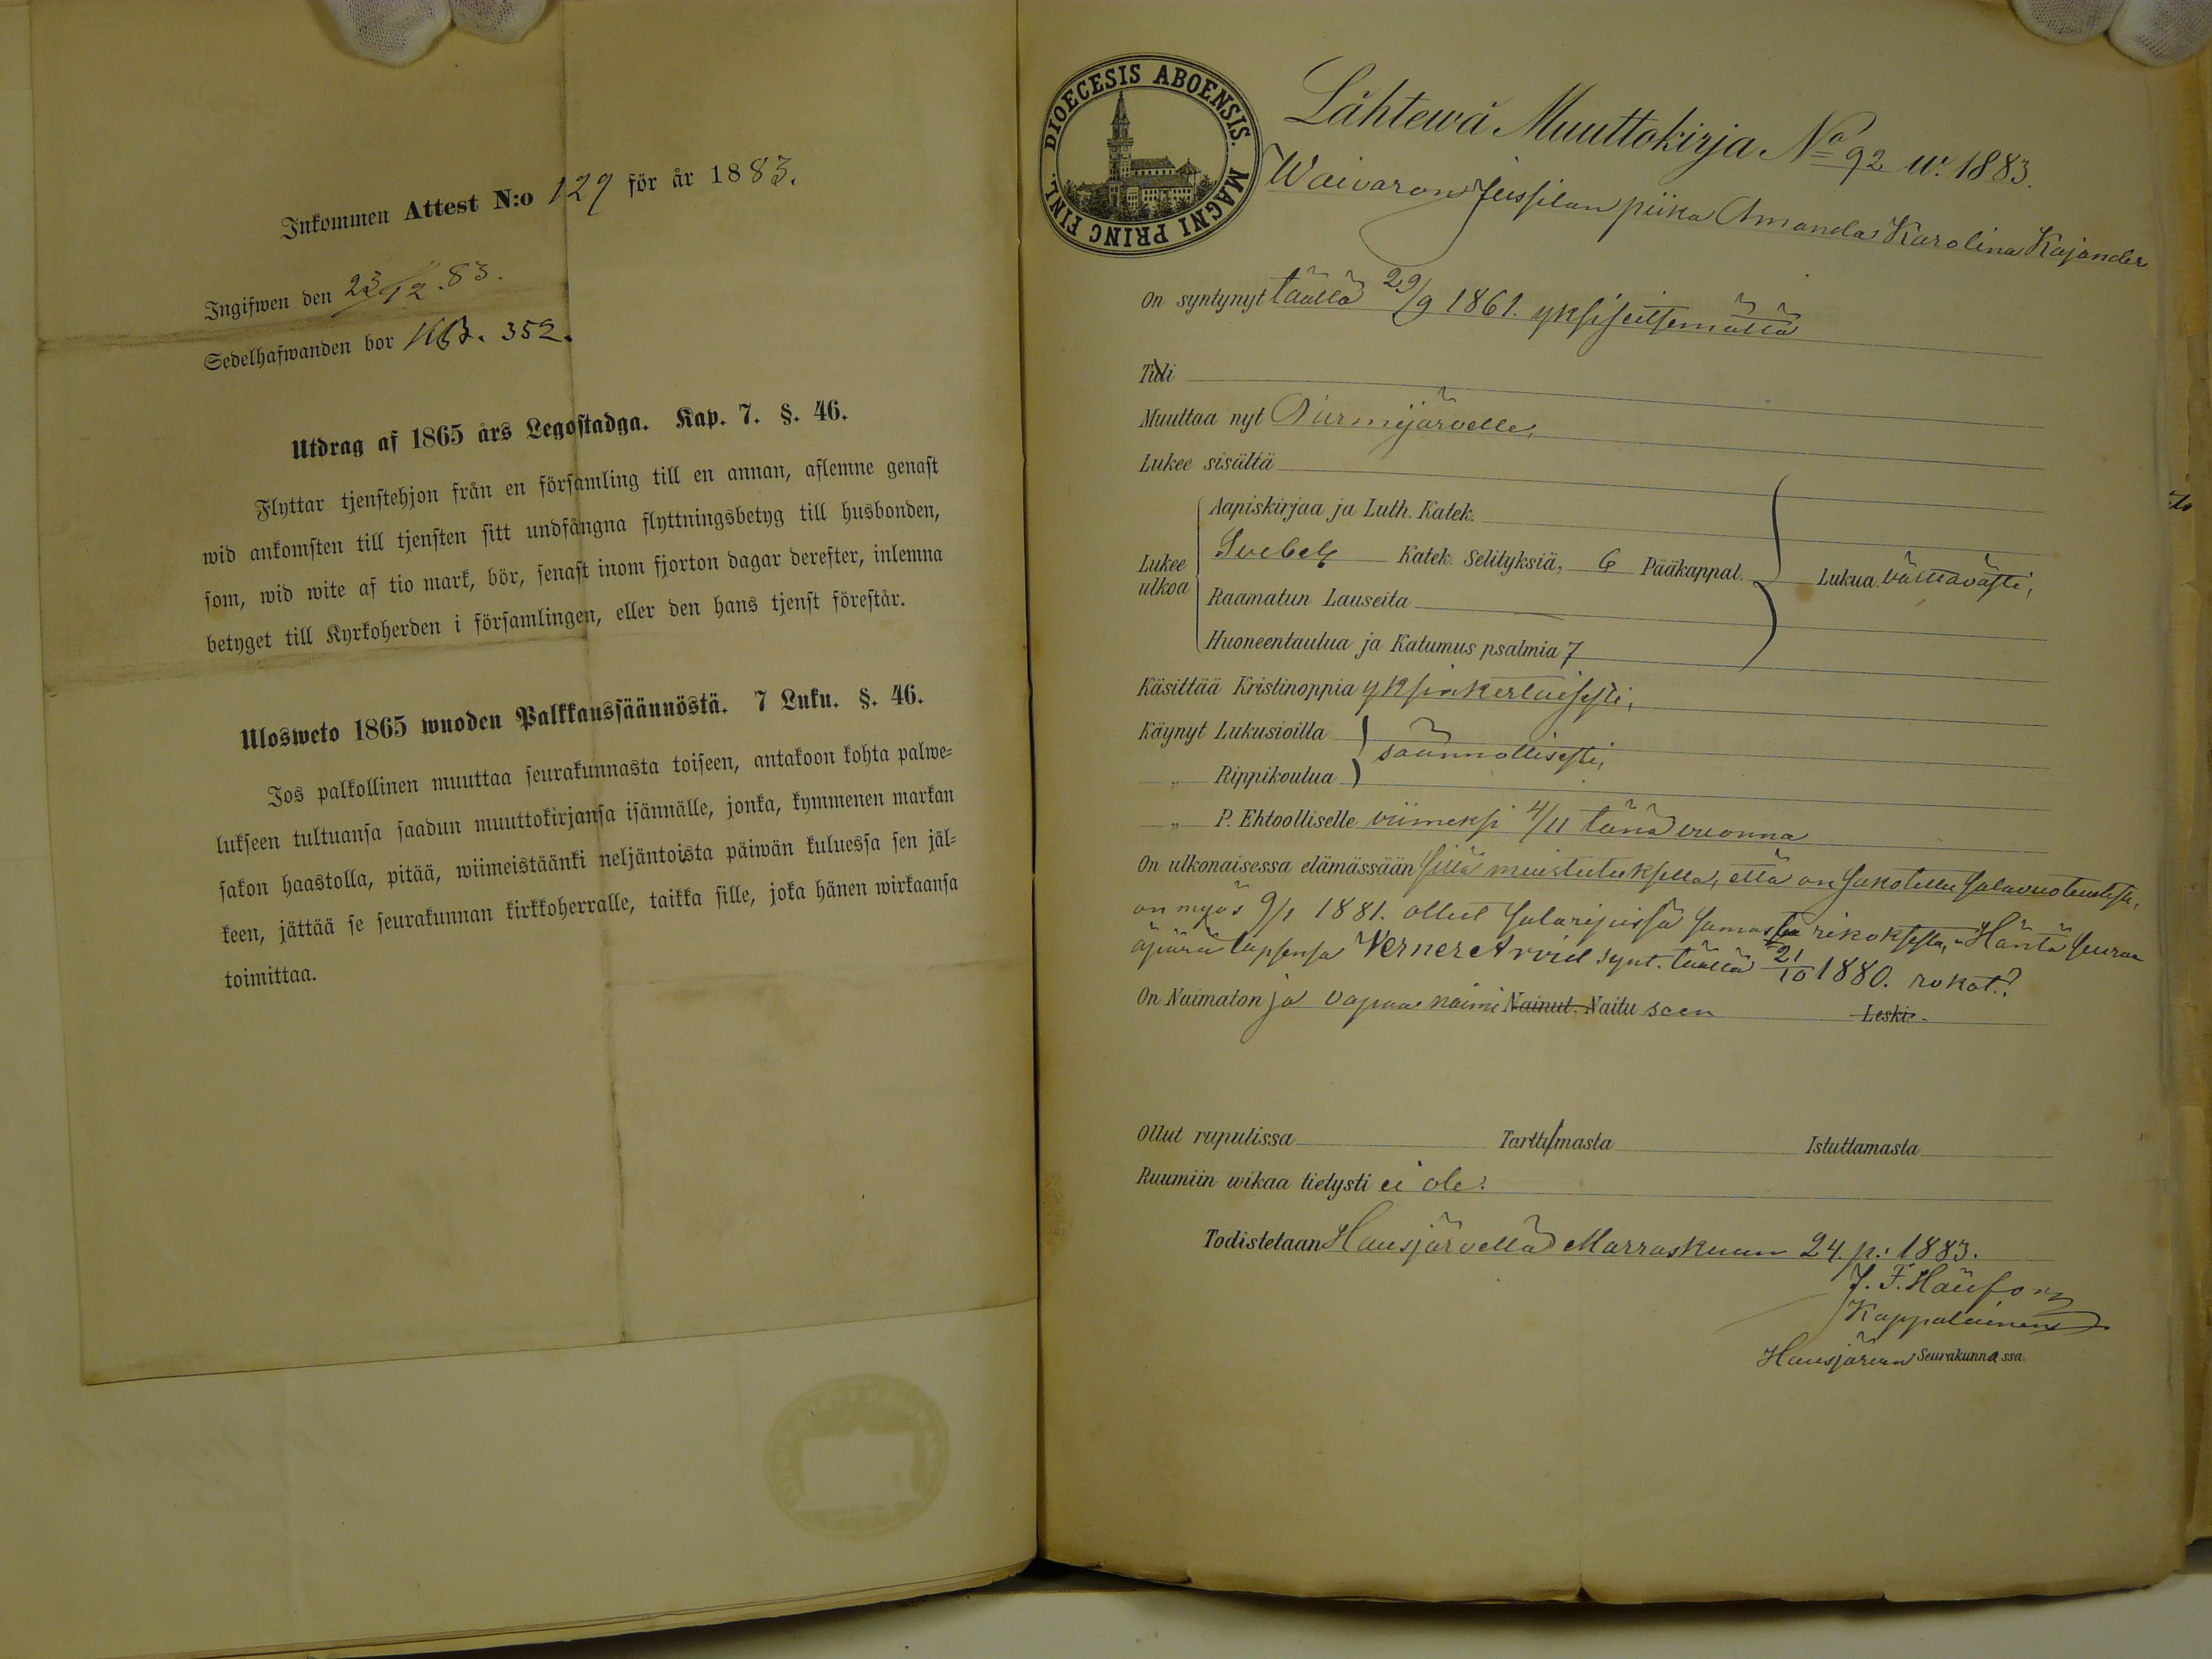 Inkommen Attest N:o 129 för år 1883.
Ingifwen den 23/12.83.
Sedelhafwanden bor KB. 352.
Utdrag af 1865 års Legostadga. Kap. 7. §. 46.
Flyttar tjenstehjon från en församling till en annan, aflemne genast
wid ankomsten till tjensten sitt undfångna flyttningsbetyg till husbonden,
som, wid wite af tio mark, bör, senast inom fjorton dagar derefter, inlemna
betyget till Kyrkoherden i församlingen, eller den hans tjenst förestår.
Ulosweto 1865 wuoden Palkkaussäännöstä. 7 Luku. §. 46.
Jos palkollinen muuttaa seurakunnasta toiseen, antakoon kohta palwe-
lukseen tultuansa saadun muuttokirjansa isännälle, jonka, kymmenen markan
sakon haastolla, pitää, wiimeistäänki neljäntoista päiwän kuluessa sen jäl-
keen, jättää se seurakunnan kirkkoherralle, taikka sille, joka hänen wirkaansa
toimittaa.
DIOECESIS ABOENSIS. MAGNI PRINC FINL.
Lähtewä Muuttokirja No 92 w. 1883.
Waivaron Jussilan piika Amanda Karolina Kajander
On syntynyt täällä 29/9 1861. yksiseitsemättä
Tuli
Muuttaa nyt Nurmijärvelle,
Lukee sisältä
Aapiskirjaa ja Luth. Katek.
Lukee ulkoa Svebel. Katek. Selityksiä, 6 Pääkappal. Lukua välttävästi,
Raamatun Lauseita
Huoneentaulua ja Katumus psalmia 7
Käsittää Kristinoppia yksinkertaisesti,
Käynyt Lukusioilla säännöllisesti,
„ Rippikoulua
„ P. Ehtoolliselle viimeksi 4/11 tänä vuonna
On ulkonaisessa elämässään sillä muistutuksella, että on sakotettu salavuoteudesta,
on myös 9/1 1881. ollut salaripissä samasta rikoksesta, Häntä seuraa
äpärä lapsensa Verner Arvid synt. täällä 21/10 1880. rokot.?
On Naimaton ja vapaa naimi Nainut. Naitu seen Leski.
Ollut rupulissa Tarttumasta Istuttamasta
Ruumiin wikaa tietysti ei ole.
Todistetaan Hausjärvellä Marraskuun 24. p. 1883.
J. F.
Kappalainen
Hausjärven Seurakunnassa.